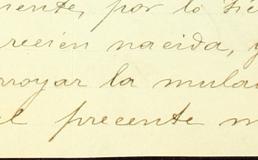 mente, por lo tie
recién nacida, y
rroyar la mula
el precente m